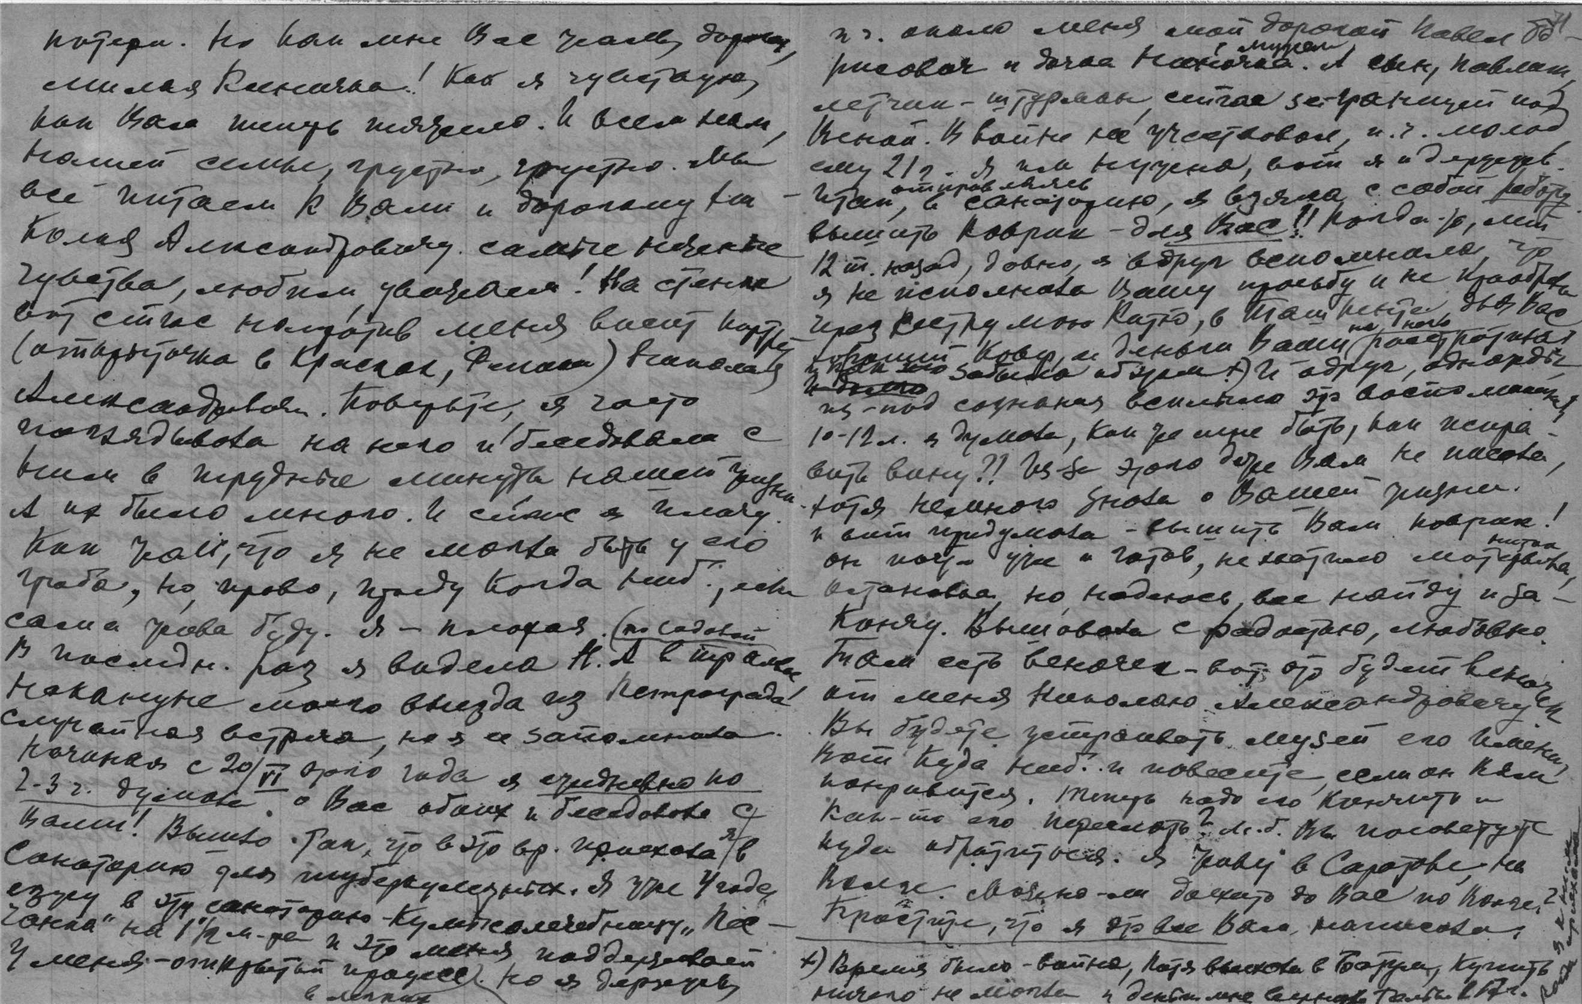 потери. Но как мне Вас жаль, дорогая,
милая Ксаничка! Как я чувствую,
как Вам теперь тяжело. И всем нам,
нашей семье, грустно, грустно. Мы
все питаем к Вам и дорогому Ни-
колая Александровичу самые нежные
чувства, любим, уважаем! На стенке
вот сейчас напротив меня висит портрет
(открыточка в красках, ) Николая
Александровича. Поверьте, я часто
поглядывала на него и беседовала с
ним в трудные минуты нашей жизни.
А их было много. И сейчас я плачу.
Как жаль, что я не могла быть у его
гроба, но, право, приеду когда ниб., если
сама жива буду. Я – плохая.
В последн. раз я видела Н. А. в трамвае
накануне моего выезда из Петрограда!
случайная встреча, но я ее запомнила.
Начиная с 20/VI этого года я ежедневно по
2-3 ч. думала о Вас обоих и беседовала с
Вами! Вышло так, что в это вр. приехала я в
санаторию для туберкулезных. Я уже 4 года
езжу в эту санаторию-кумысолечебницу „Пес-
чанка" на 1 1/2 м-ца и это меня поддерживает
У меня – открытый процесс. Но я держусь,
в легких
п.ч. около меня мой дорогой Павел Бо-
рисович и дочка Ниночка. А сын, Павлик,
с мужем
летчик-штурман, сейчас за границей под
Веной. В войне не участвовал, п.ч. молод
ему 21 г. Я им нужна, вот я и держусь.
Итак, отправляясь в санаторию, я взяла с собой работу
вышить коврик – для Вас!! Когда-то, лет
12 т. назад, давно, я вдруг вспомнила, что
я не исполнила Вашу просьбу и не приобрела
через сестру мою Катю, в Ташкенте для Вас
ковер, и деньги Ваши растратила
забыла об этом x) И вдруг, однажды
из-под сознания всплыло это воспоминание
10-12 л. я думала, как же мне быть, как испра-
вить вину?! Из-за этого даже Вам не писала,
хотя немного знала о Вашей жизни.
И вот придумала – вышить Вам коврик!
он почти уже и готов, не хватило моточка, нитки
остановка, но, надеюсь, все найду и за-
кончу. Вышивала с радостью, любовно.
Там есть веночек – вот это будет веночек
от меня Николаю Александровичу.
Вы будете устраивать музей его имени,
вот куда ниб. и повесите, если он Вам
понравится. Теперь надо его кончить и
как-то его переслать? М.б. Вы посоветуете
куда обратиться. Я живу в Саратове, на
Волге. Можно-ли доехать до Вас по Волге?
Простите, что я это все Вам написала.
x) Время было – война, Катя выехала в , купить
ничего не могла и деньги мне